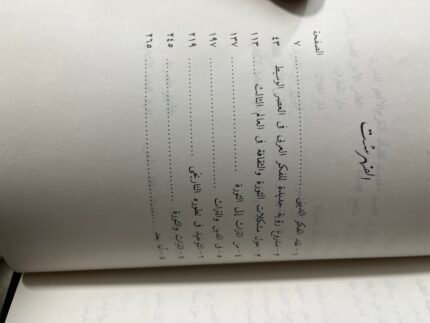 الفهرست
الصفحة
١ - نقد الفكر الديني ........ ٧
٢ - مشروع رؤية جديدة للفكر العربي في العصر الوسيط ٤٣
٣ - حول مشكلات الثورة والثقافة في العالم الثالث ... ١١٣
٤ - من التراث إلى الثورة ........ ١٣٧
٥ - في الدين والتراث ........ ١٩٧
٦ - التوحيد في تطوره التاريخي ........ ٢١٩
٧ - التراث والثورة ........ ٢٤٥
٨ - أما بعد ........ ٢٦٥